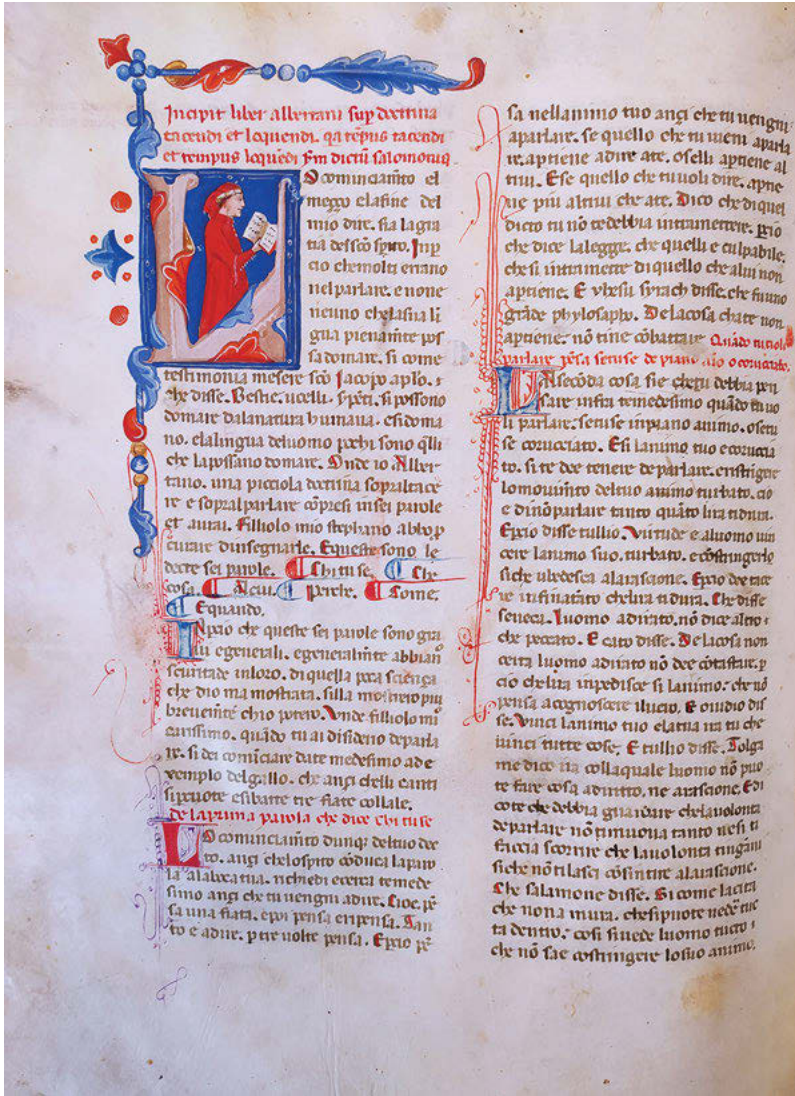 Incipit liber albertani sup doctrina
tacendi et loquendi. qa tēpus tacendi
et tempus loquēdi fm dictū salomoniq
O cominciamēto el
meçço elafine del
mio dire. sia lagra
tia desscō spiro. Inp
cio chemolti errano
nelparlare. enone
neuno chelasua lī
gua pienamīte pos
sa domare. si come
testimonia mesere scō Jacopo aplo.
che disse. Bestie. ucelli. si possono
domare dalanatura humana. esidoma
no. elalingua deluomo pochi sono qlli
che lapossano domare. Onde io Alber
tano. una picciola doctrina sopraltace
re e sopralparlare cōpresi insei parole
et aurai. Filliolo mio stephano abbo p
curare dinsegnarle. Equeste sono le
decte sei parole. Chi tu se. Che
cosa. Alcui. Perche. Come.
Equando.
INpcio che queste sei parole sono gra
ui egenerali. egeneralmīte abbian
scuritade inloro. di quella poca sciença
che dio ma mostrata. silla mostrero piu
brevemēte chio potero. Vnde filliolo mi
carissimo. quādo tu ai disiderio deparla
re. si dei comīciare date medesimo ad e
xemplo delgallo. che ançi chelli canti
sipercuote esibatte tre fiate collale.
delaprima parola che dice chi tu se
LO cominciamīto dunq deltuo dec
to. ançi chelospirito cōduca laparo
la alabocca tua. richiedi ecerca temede
simo ançi che tu uengni adire. Cioe. pē
sa una fiata. epoi pensa enpensa. Tan
to e adire. p tre uolte pensa. Epcio pē
sa nellanimo tuo ançi che tu uengni
aparlare. se quello che tu uieni aparla
re. aptiene adire ate. oselli aptiene al
trui. Ese quello che tu uoli dire. aptie
ne piu altrui che ate. Dico che di quel
dicto tu nō te debbia intramettere. Epcio
che dice lalegge. che quelli e culpabile.
che si intramette di quello che alui non
aptiene. E yhesu syrach disse. che fu uno
grāde phylosapho. Delacosa chate non
aptiene. nō tine cōbattare Quādo tu uoli
parlare pēsa setuse de piano aīo o corucciato.
LAsecōda cosa. sie chetu debbia pen
sare infra temedesimo quādo tu uo
li parlare. setuse inpiano animo. osetu
se corucciato. Esi lanimo tuo e coruccia
to. si te dee tenere de parlare. enstrigere
lomouimēto deltuo animo turbato. cio
e dinōparlare tanto quāto lira tidura.
Epcio disse tullio. Virtude e aluomo uin
cere lanimo suo. turbato. ecōstringerlo
siche ubedesca alarascione. Epcio dee tace
re infinatāto chelira ti dura. Che disse
seneca. Luomo adirato. nō dice altro
che peccato. E cato disse. Delacosa non
certa luomo adirato nō dee cōtastare. p
cio chelira inpedisce si lanimo. che nō
pensa acognoscere iluero. E ouidio dis
se. Vinci lanimo tuo elatua ira tu che
uinci tutte cose. E tullio disse. Tolga
me dico ira collaquale luomo nō puo
te fare cosa adiritto. ne arascione. Edi
cote che debbia guardare chelauolonta
deparlare nō timuoua tanto nesi ti
faccia scorrire che lauolonta tingāni
siche nōtilasci cōsintire alarascione.
Che salamone disse. Si come lacita
che non a mura. chesipuote uedē tut
ta dentro. cosi siuede luomo tucto
che nō sae costringere losuo animo.